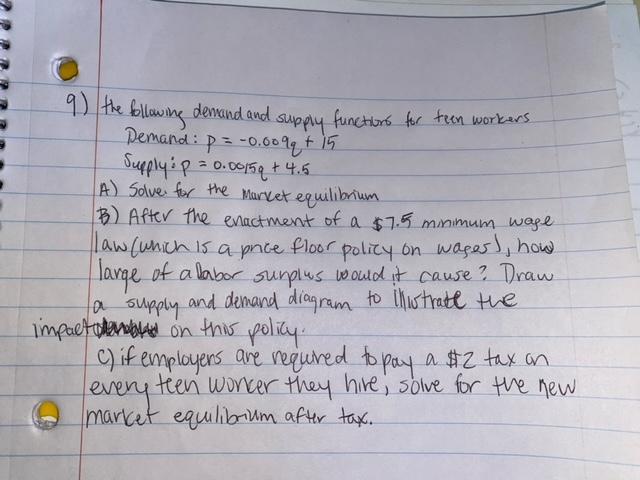 9) the following demand and supply functions for teen workers
Demand: p = -0.009q + 15
Supply: p = 0.0015q + 4.5
A) Solve for the market equilibrium
B) After the enactment of a $7.5 minimum wage
law (which is a price floor policy on wages), how
large of a labor surplus would it cause? Draw
a supply and demand diagram to illustrate the
impact on this policy.
C) if employers are required to pay a $2 tax on
every teen worker they hire, solve for the new
market equilibrium after tax.